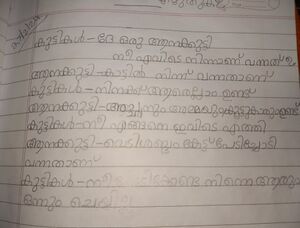 കുട്ടികൾ - ദേ ഒരു ആനക്കുട്ടി
നീ എവിടെ നിന്നാണ് വന്നത്
ആനക്കുട്ടി - കാട്ടിൽ നിന്ന് വന്നതാണ്
കുട്ടികൾ - നിനക്ക് ആരെല്ലാം ഉണ്ട്
ആനക്കുട്ടി - അച്ഛനും അമ്മയും കൂട്ടുകാരുമുണ്ട്
കുട്ടികൾ - നീ എങ്ങനെ ഇവിടെ എത്തി
ആനക്കുട്ടി - വെടിശബ്ദം കേട്ട് പേടിച്ചോടി
വന്നതാണ്
കുട്ടികൾ - നീ നിന്നെ ആരും
ഒന്നും ചെയ്യില്ല